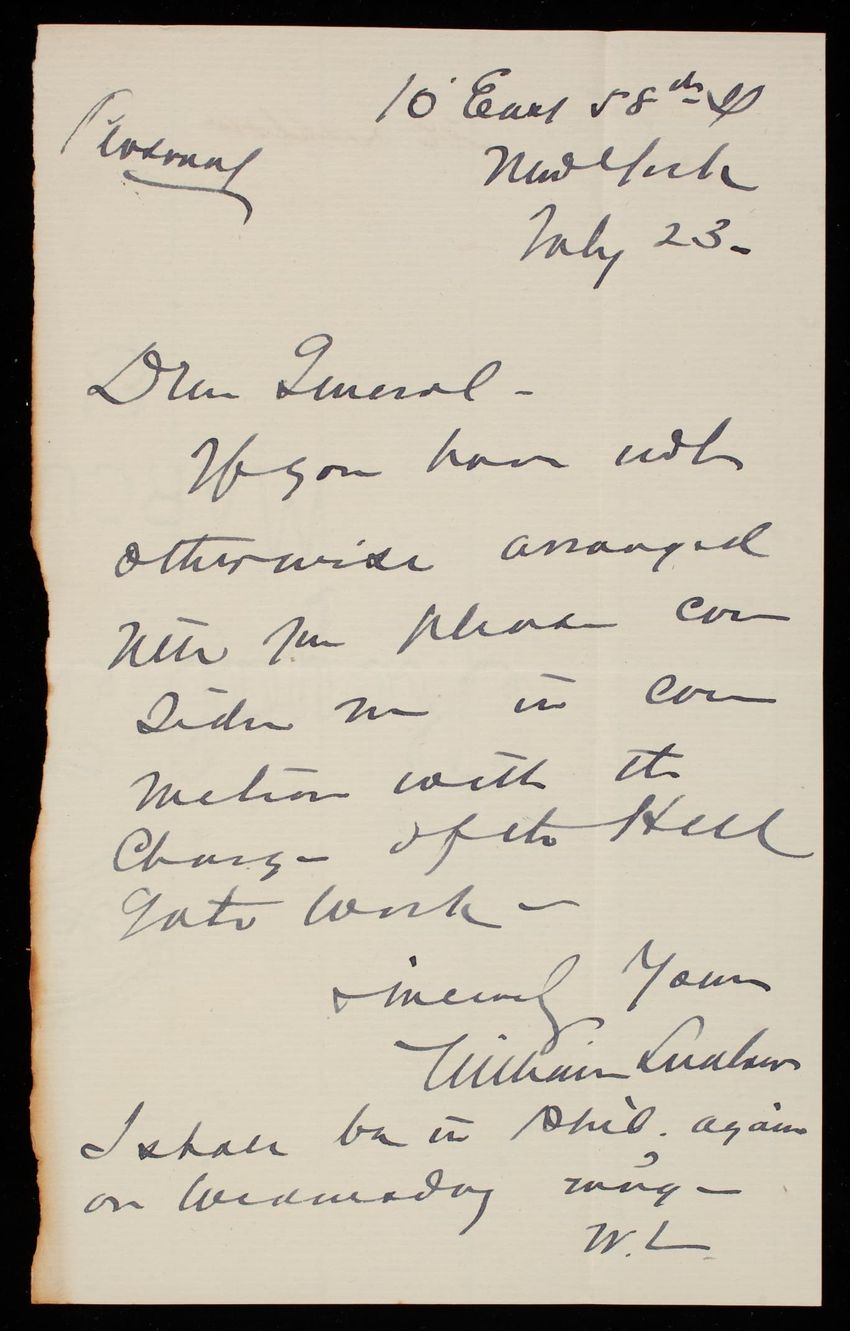 10 East 58th St
Personal
New York
July 23-
Dear General -
If you have not
otherwise arranged
please con
sider me in con
nection with the
Charge of the Hell
Gate Work -
Sincerely Yours
William Ludlow
I shall be in Phil. again
on Wednesday mng -
W. L.